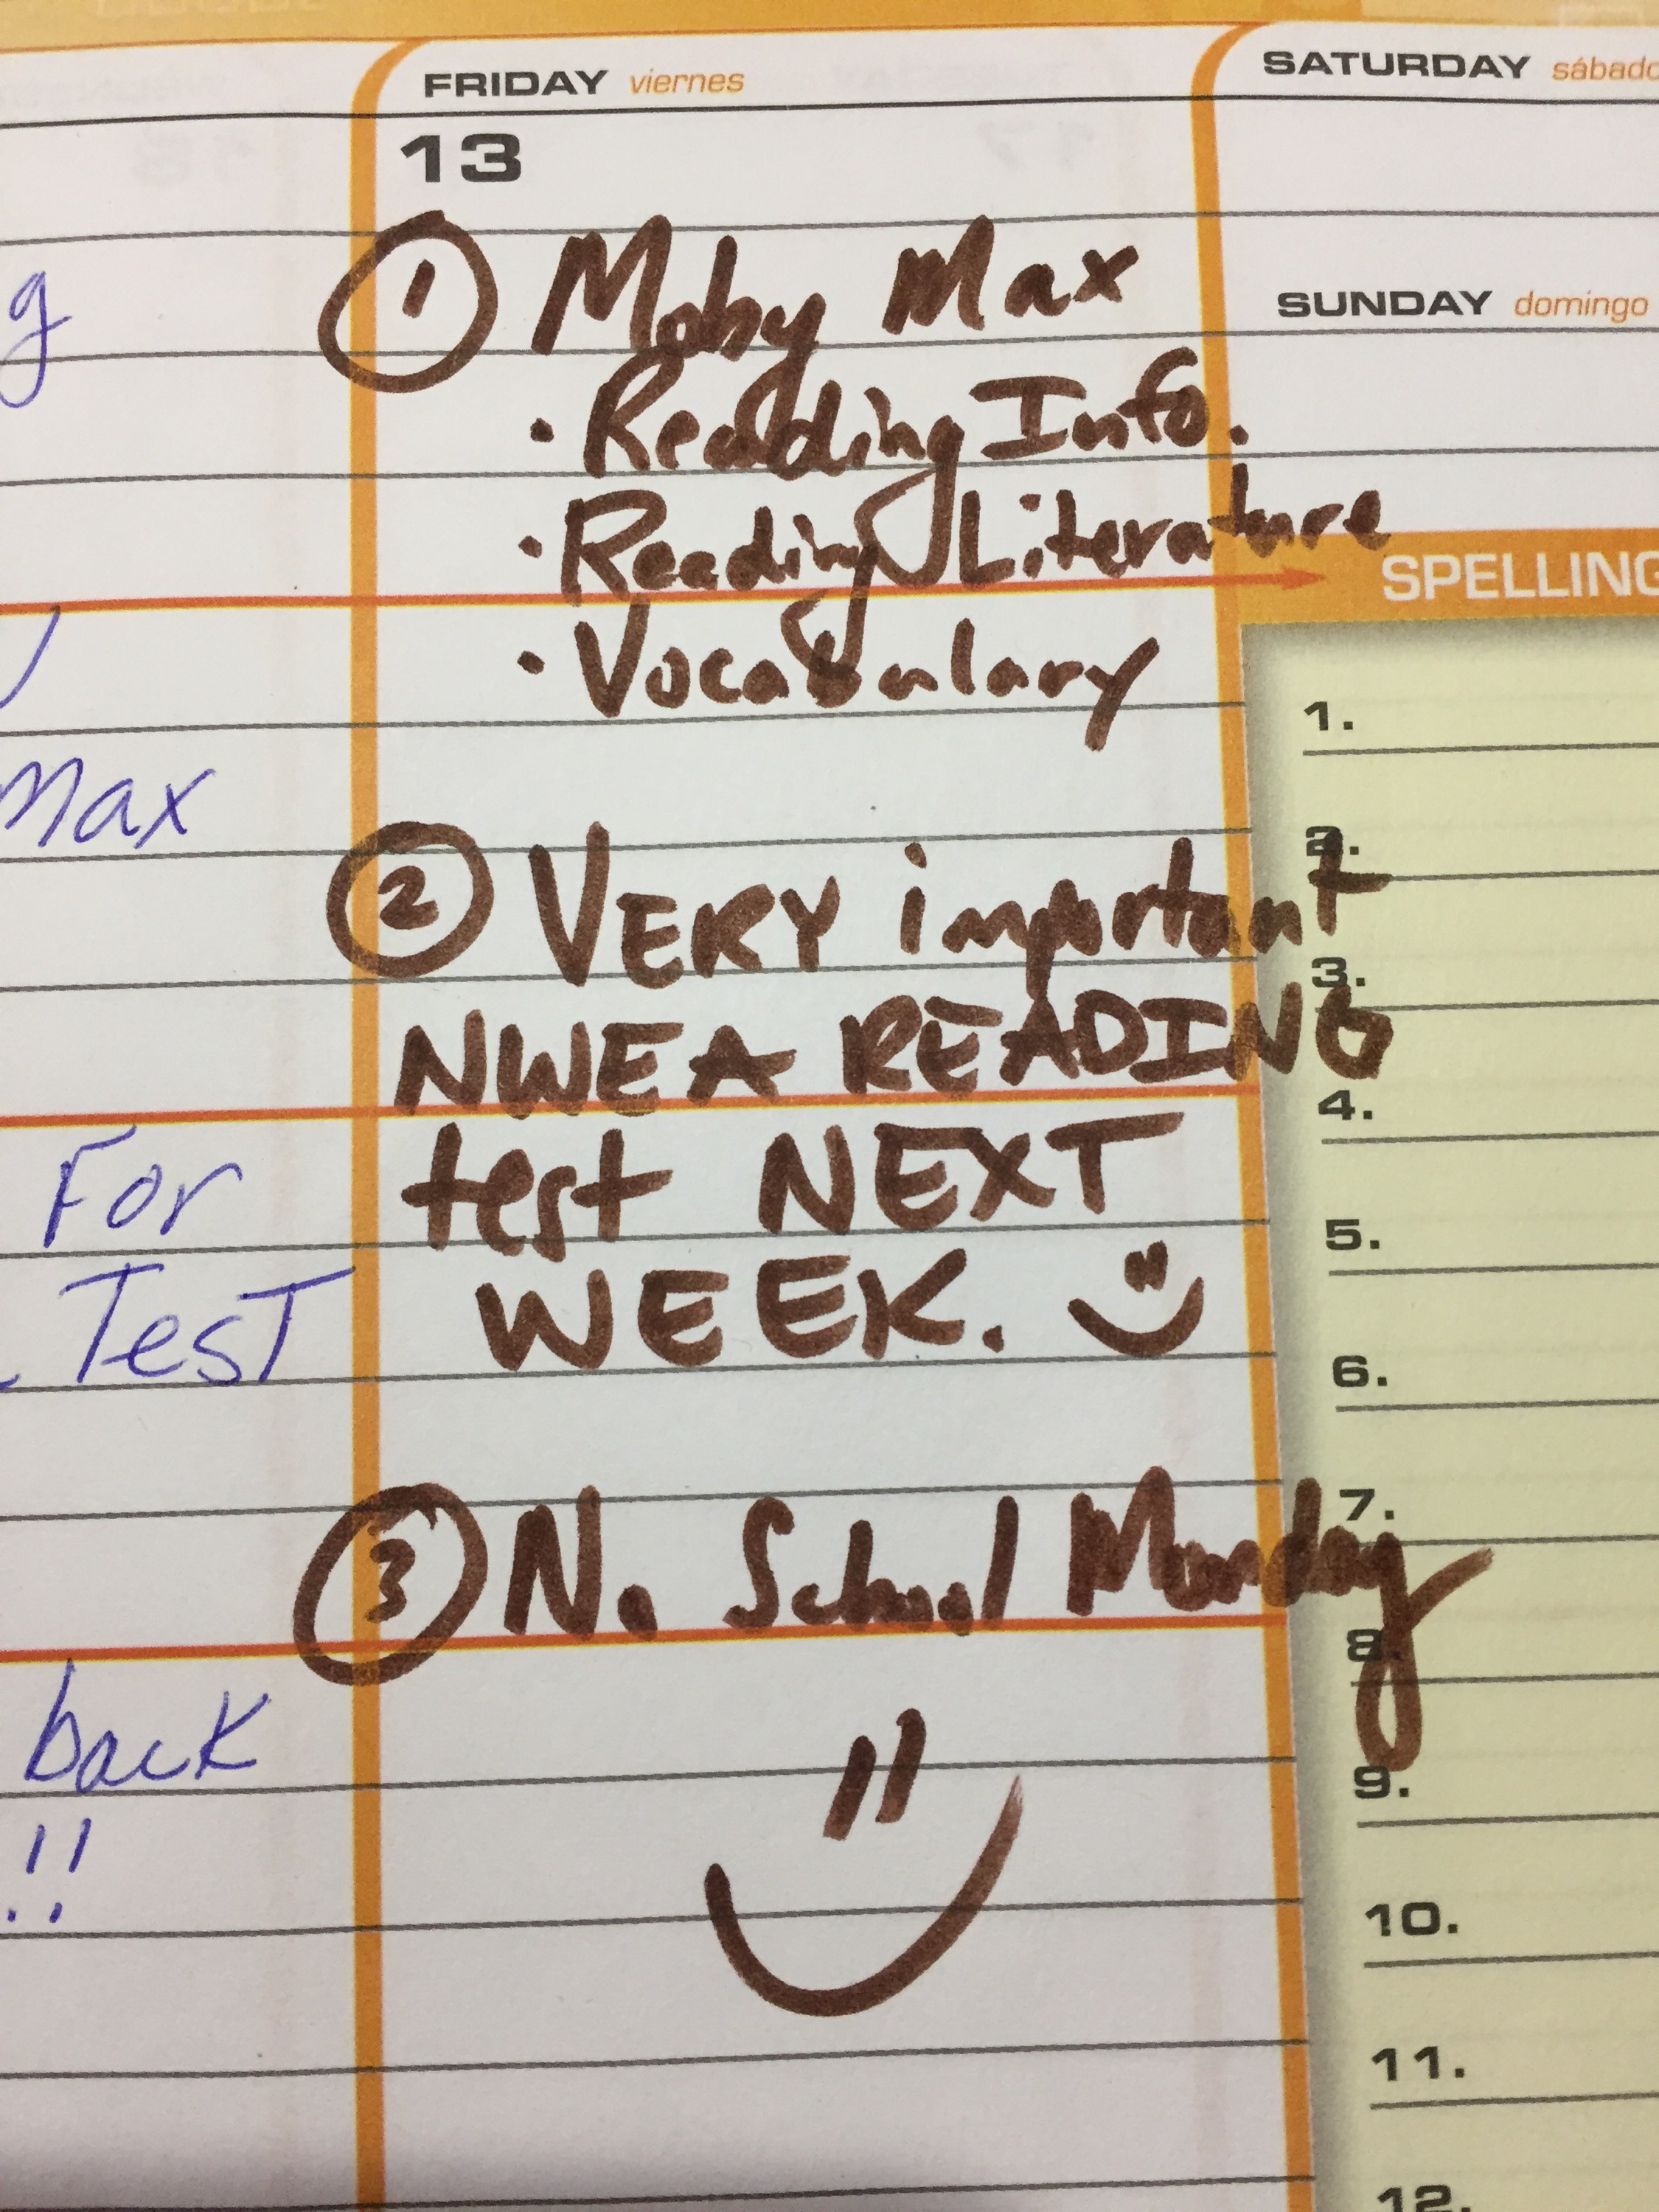 FRIDAY viernes
SATURDAY sábado
13
① Moby Max
· Reading Info.
· Reading Literature
· Vocabulary
② VERY important
NWEA READING
test NEXT
WEEK.
③ No School Monday
SUNDAY domingo
SPELLING
1.
2.
3.
4.
5.
6.
7.
8.
9.
10.
11.
12.
g
Max
For
Test
back
!!